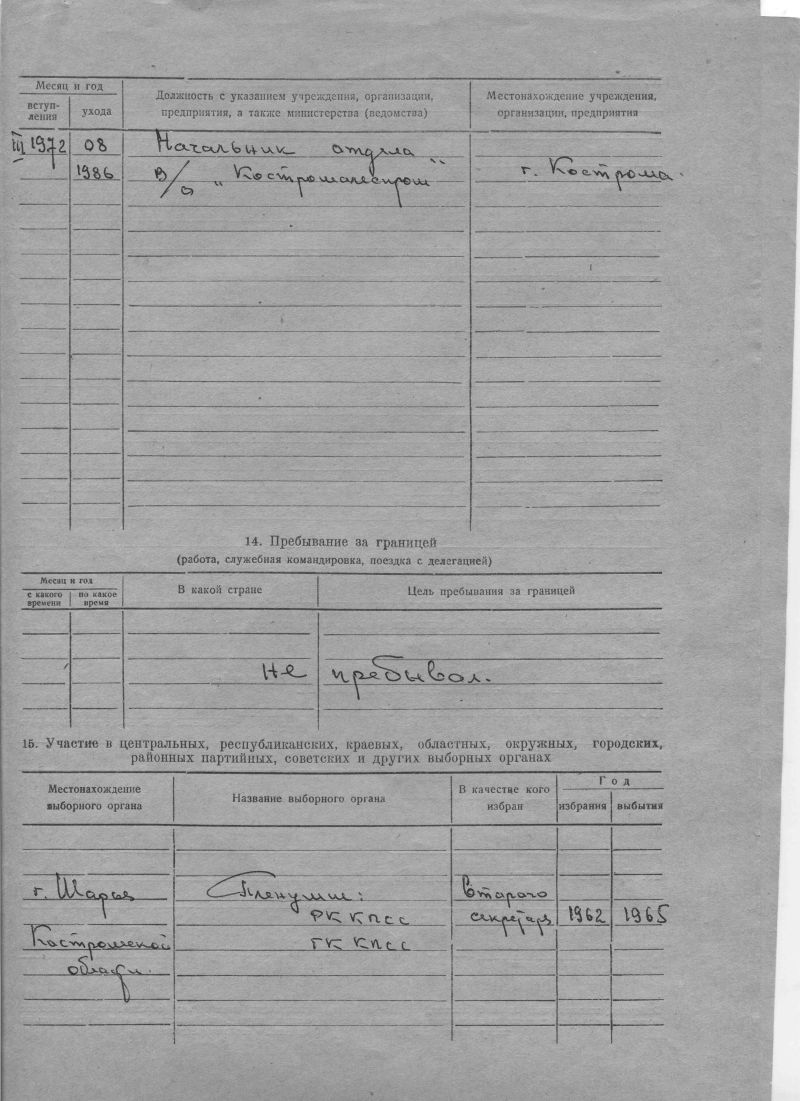 Месяц и год
вступ-
ления
ухода
Должность с указанием учреждения, организации,
предприятия, а также министерства (ведомства)
Местонахождение учреждения,
организации, предприятия
III 1972 08 Начальник отдела
1986 в/о „Костромалеспром“ г. Кострома.
14. Пребывание за границей
(работа, служебная командировка, поездка с делегацией)
Месяц и год
с какого
времени
по какое
время
В какой стране
Цель пребывания за границей
Не пребывал.
15. Участие в центральных, республиканских, краевых, областных, окружных, городских,
районных партийных, советских и других выборных органах
Местонахождение
выборного органа
Название выборного органа
В качестве кого
избран
Год
избрания
выбытия
г. Шарья Пленумы: Второго
РК КПСС секретаря 1962 1965
Костромской ГК КПСС
области.